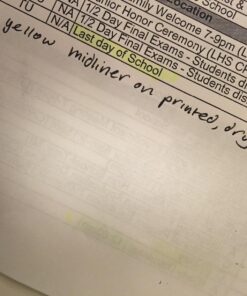 Location
Family Welcome 7-9pm
Senior Honor Ceremony (LHS
NA 1/2 Day Final Exams - Students di
TU NA 1/2 Day Final Exams - Students dis
N/A Last day of School
yellow midliner on printed, dry